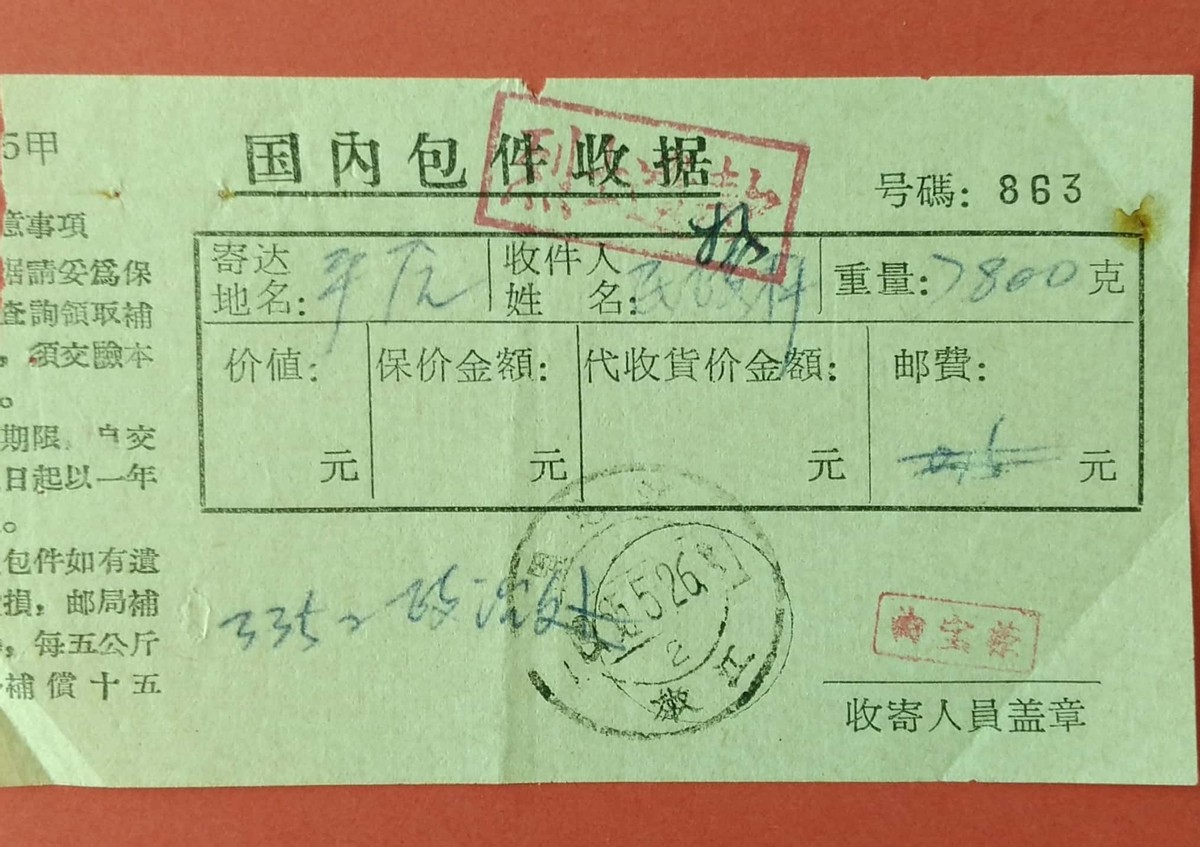 5甲
国内包件收据
号碼: 863
意事项
据請妥爲保
查詢領取補
，須交驗本
。
期限，自交
日起以一年
。
包件如有遺
損，邮局補
，每五公斤
補償十五
寄达地名:
收件人姓名: 民政科
重量: 7800克
价値: 元
保价金額: 元
代收貨价金額: 元
邮費: 元
3352 政治处
5.26
2
江
收寄人員盖章